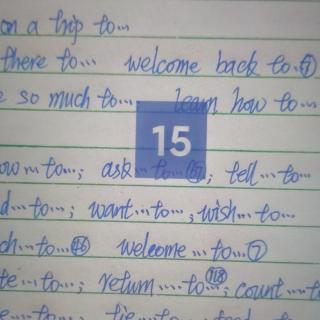 on a trip to...
there to... welcome back to...⑦
so much to... learn how to...
15
to...; ask...to...; tell...to...
to...; want...to...; wish...to...
to... welcome...to...⑦
to...; return...to...; count...t